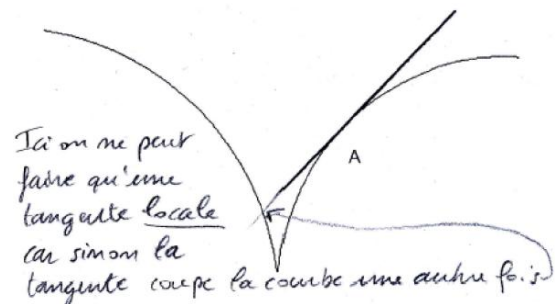 Ici on ne peut
A
faire qu'une
tangente locale
car sinon la
tangente coupe la courbe une autre fois